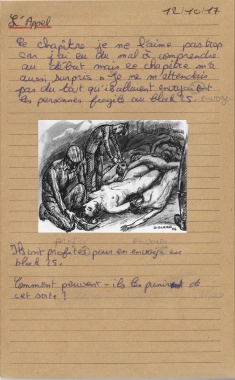 12/10/17
L'Appel
Ce chapitre je ne l'aime pas trop
car j'ai eu du mal à comprendre
au début mais ce chapitre m'a
aussi surpris. Je ne m'attendais
pas du tout qu'ils allaient envoyaient
les personnes fragils au block 25.
Ils ont profités pour en envoyés au
block 25.
Comment peuvent-ils les punir de
cet sorte !